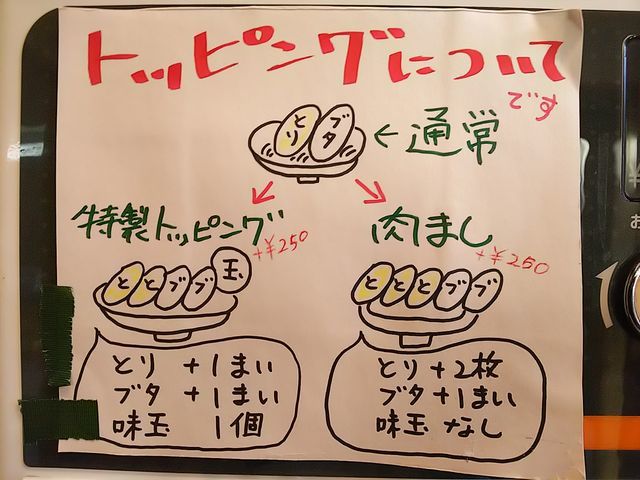 トッピングについて
です
とり
ブタ
←通常
特製トッピング
+¥250
肉まし
+¥250
と
と
ブ
ブ
玉
と
と
と
ブ
ブ
とり +1まい
ブタ +1まい
味玉 1個
とり +2枚
ブタ +1まい
味玉 なし
お